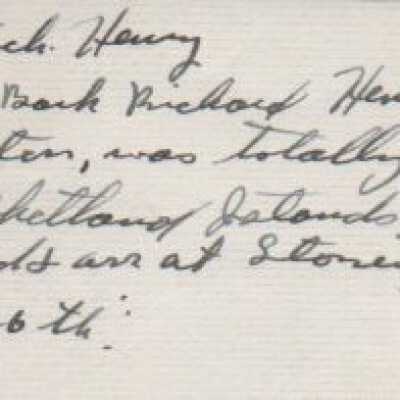 ch. Henry
Bark Richard Hen
ten, was totally
Shetland Islands
ds arr at Stone
6th.